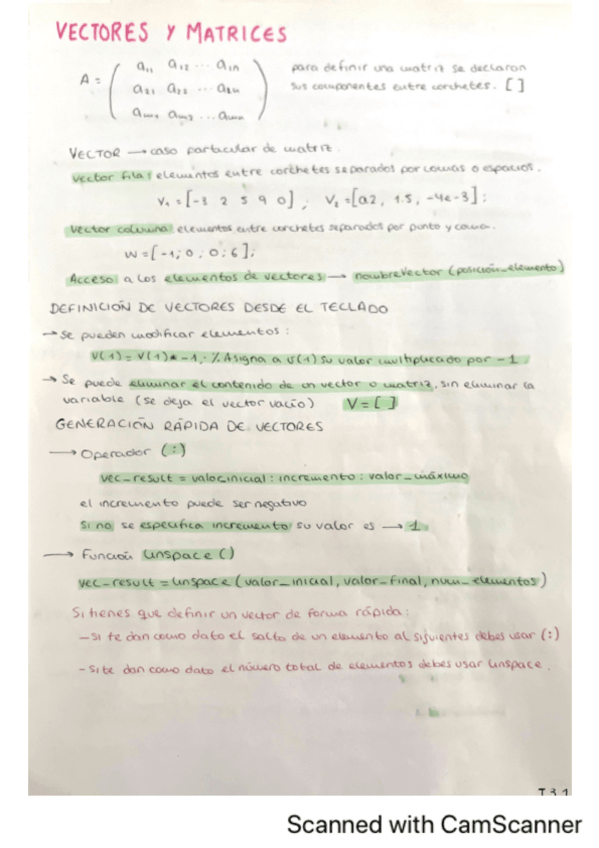 VECTORES Y MATRICES
A = ( a11 a12 ... a1n
a21 a22 ... a2n
am1 am2 ... amn )
para definir una matriz se declaran
sus componentes entre corchetes. [ ]
VECTOR → caso particular de matriz.
Vector fila: elementos entre corchetes separados por comas o espacios.
V1 = [-3 2 5 9 0]; V2 = [a2, 1.5, -4e-3];
Vector columna: elementos entre corchetes separados por punto y coma.
W = [-1; 0; 0; 6];
Acceso a los elementos de vectores → nombreVector (posición_elemento)
DEFINICIÓN DE VECTORES DESDE EL TECLADO
→ Se pueden modificar elementos:
V(1) = V(1)* -1; % Asigna a V(1) su valor multiplicado por -1
→ Se puede eliminar el contenido de un vector o matriz, sin eliminar la
variable (se deja el vector vacío) V = [ ]
GENERACIÓN RÁPIDA DE VECTORES
→ Operador (:)
vec_result = valor_inicial : incremento : valor_máximo
el incremento puede ser negativo
Si no se especifica incremento su valor es → 1.
→ Función linspace ()
vec_result = linspace (valor_inicial, valor_final, num_elementos)
Si tienes que definir un vector de forma rápida:
- Si te dan como dato el salto de un elemento al siguientes debes usar (:)
- Si te dan como dato el número total de elementos debes usar linspace.
T 3.1
Scanned with CamScanner